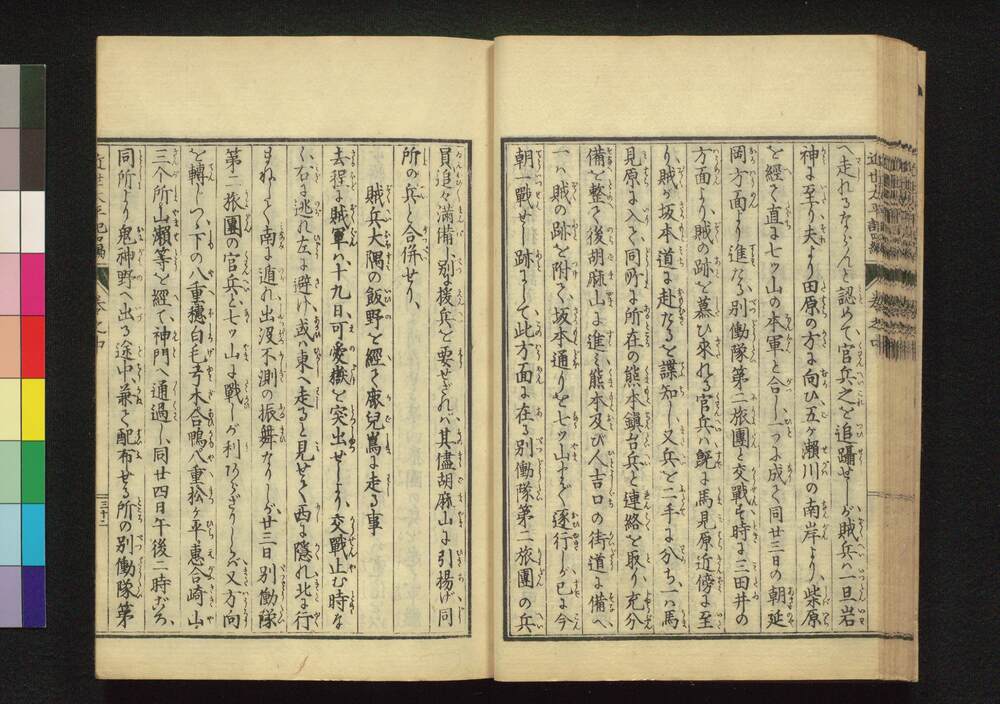 へ走れるならんと認めて、官兵之を追躡せしが賊兵ハ一旦岩
神に至り、夫より田原の方に向ひ、五ヶ瀬川の南岸より、柴原
を經て直に七ッ山の本軍と合し、一つに成て、同廿三日の朝延
岡方面より進たる、別働隊第二旅團と交戰す、時に三田井の
方面より、賊の跡を慕ひ來れる官兵ハ既に馬見原近傍に至
り、賊が坂本道に赴たるを諜知し、又兵を二手に分ち、一ハ馬
見原に入て同所に所在の熊本鎭台兵と連絡を取り、充分
備を整て後胡麻山に進み、熊本及び人吉口の街道に備へ、
一ハ賊の跡を附て、坂本通りを七ッ山まで逐行しが已に今
朝一戰せし跡にして、此方面に在る別働隊第二旅團の兵
員追々滿備、別に援兵を要せざれバ、其儘胡麻山に引揚げ同
所の兵と合併せり、
賊兵大隅の飯野を經て鹿兒嶌に走る事
去程に賊軍ハ、十九日、可愛嶽を突出せしより、交戰止む時な
く、右に逃れ左に避け、或ハ東へ走ると見せて、西に隱れ北に行
まねして、南に遁れ、出沒不測の振舞なりしが、廿三日別働隊
第二旅團の官兵と、七ッ山に戰しが利あらざりしかバ又方向
を轉じつゝ、下の八重穗白毛
三个所山瀬等を經て、神門へ通過し、同廿四日午後二時ごろ、
同所より鬼神野へ出る途中、兼て配布せる所の別働隊第
三十二